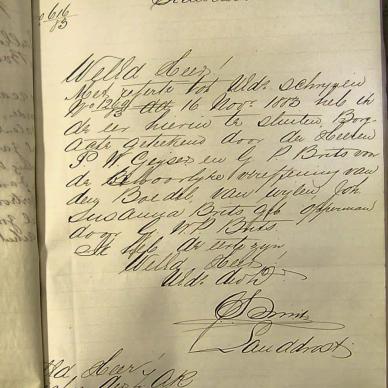 616/83
Weled Heer!
Met referte tot UEd. schryven
No 1269 dd 16 Nov. 1883 heb ik
de eer hierin te sluiten Borg-
acte geteekend door de Heeren
P W Geyser en G P Brits voor
de behoorlyke vereffening van
den Boedel van wylen Joh
Susanna Brits geb. Opperman
door G. M. P. Brits.
Ik heb de eer te zyn
Weled Heer!
UEd. dw D.
Landdrost
Heer!